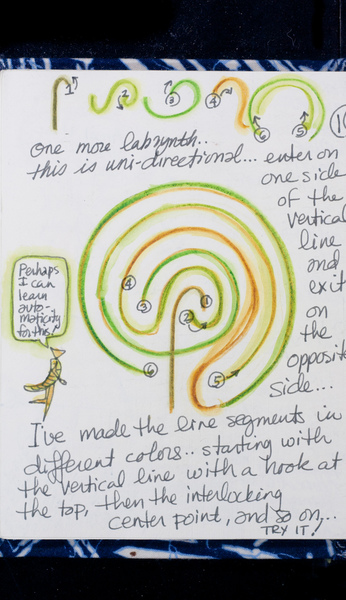 1
2
3
4
6
5
one more labzynth..
this is uni-directional... enter on
one side
of the
vertical
line
and
exit
on
the
opposite
side...
4
3
1
2
6
5
Perhaps
I can
learn
auto-
maticity
for this!
I've made the line segments in
different colors.. starting with
the vertical line with a hook at
the top, then the interlocking
center point, and so on,..
TRY IT!